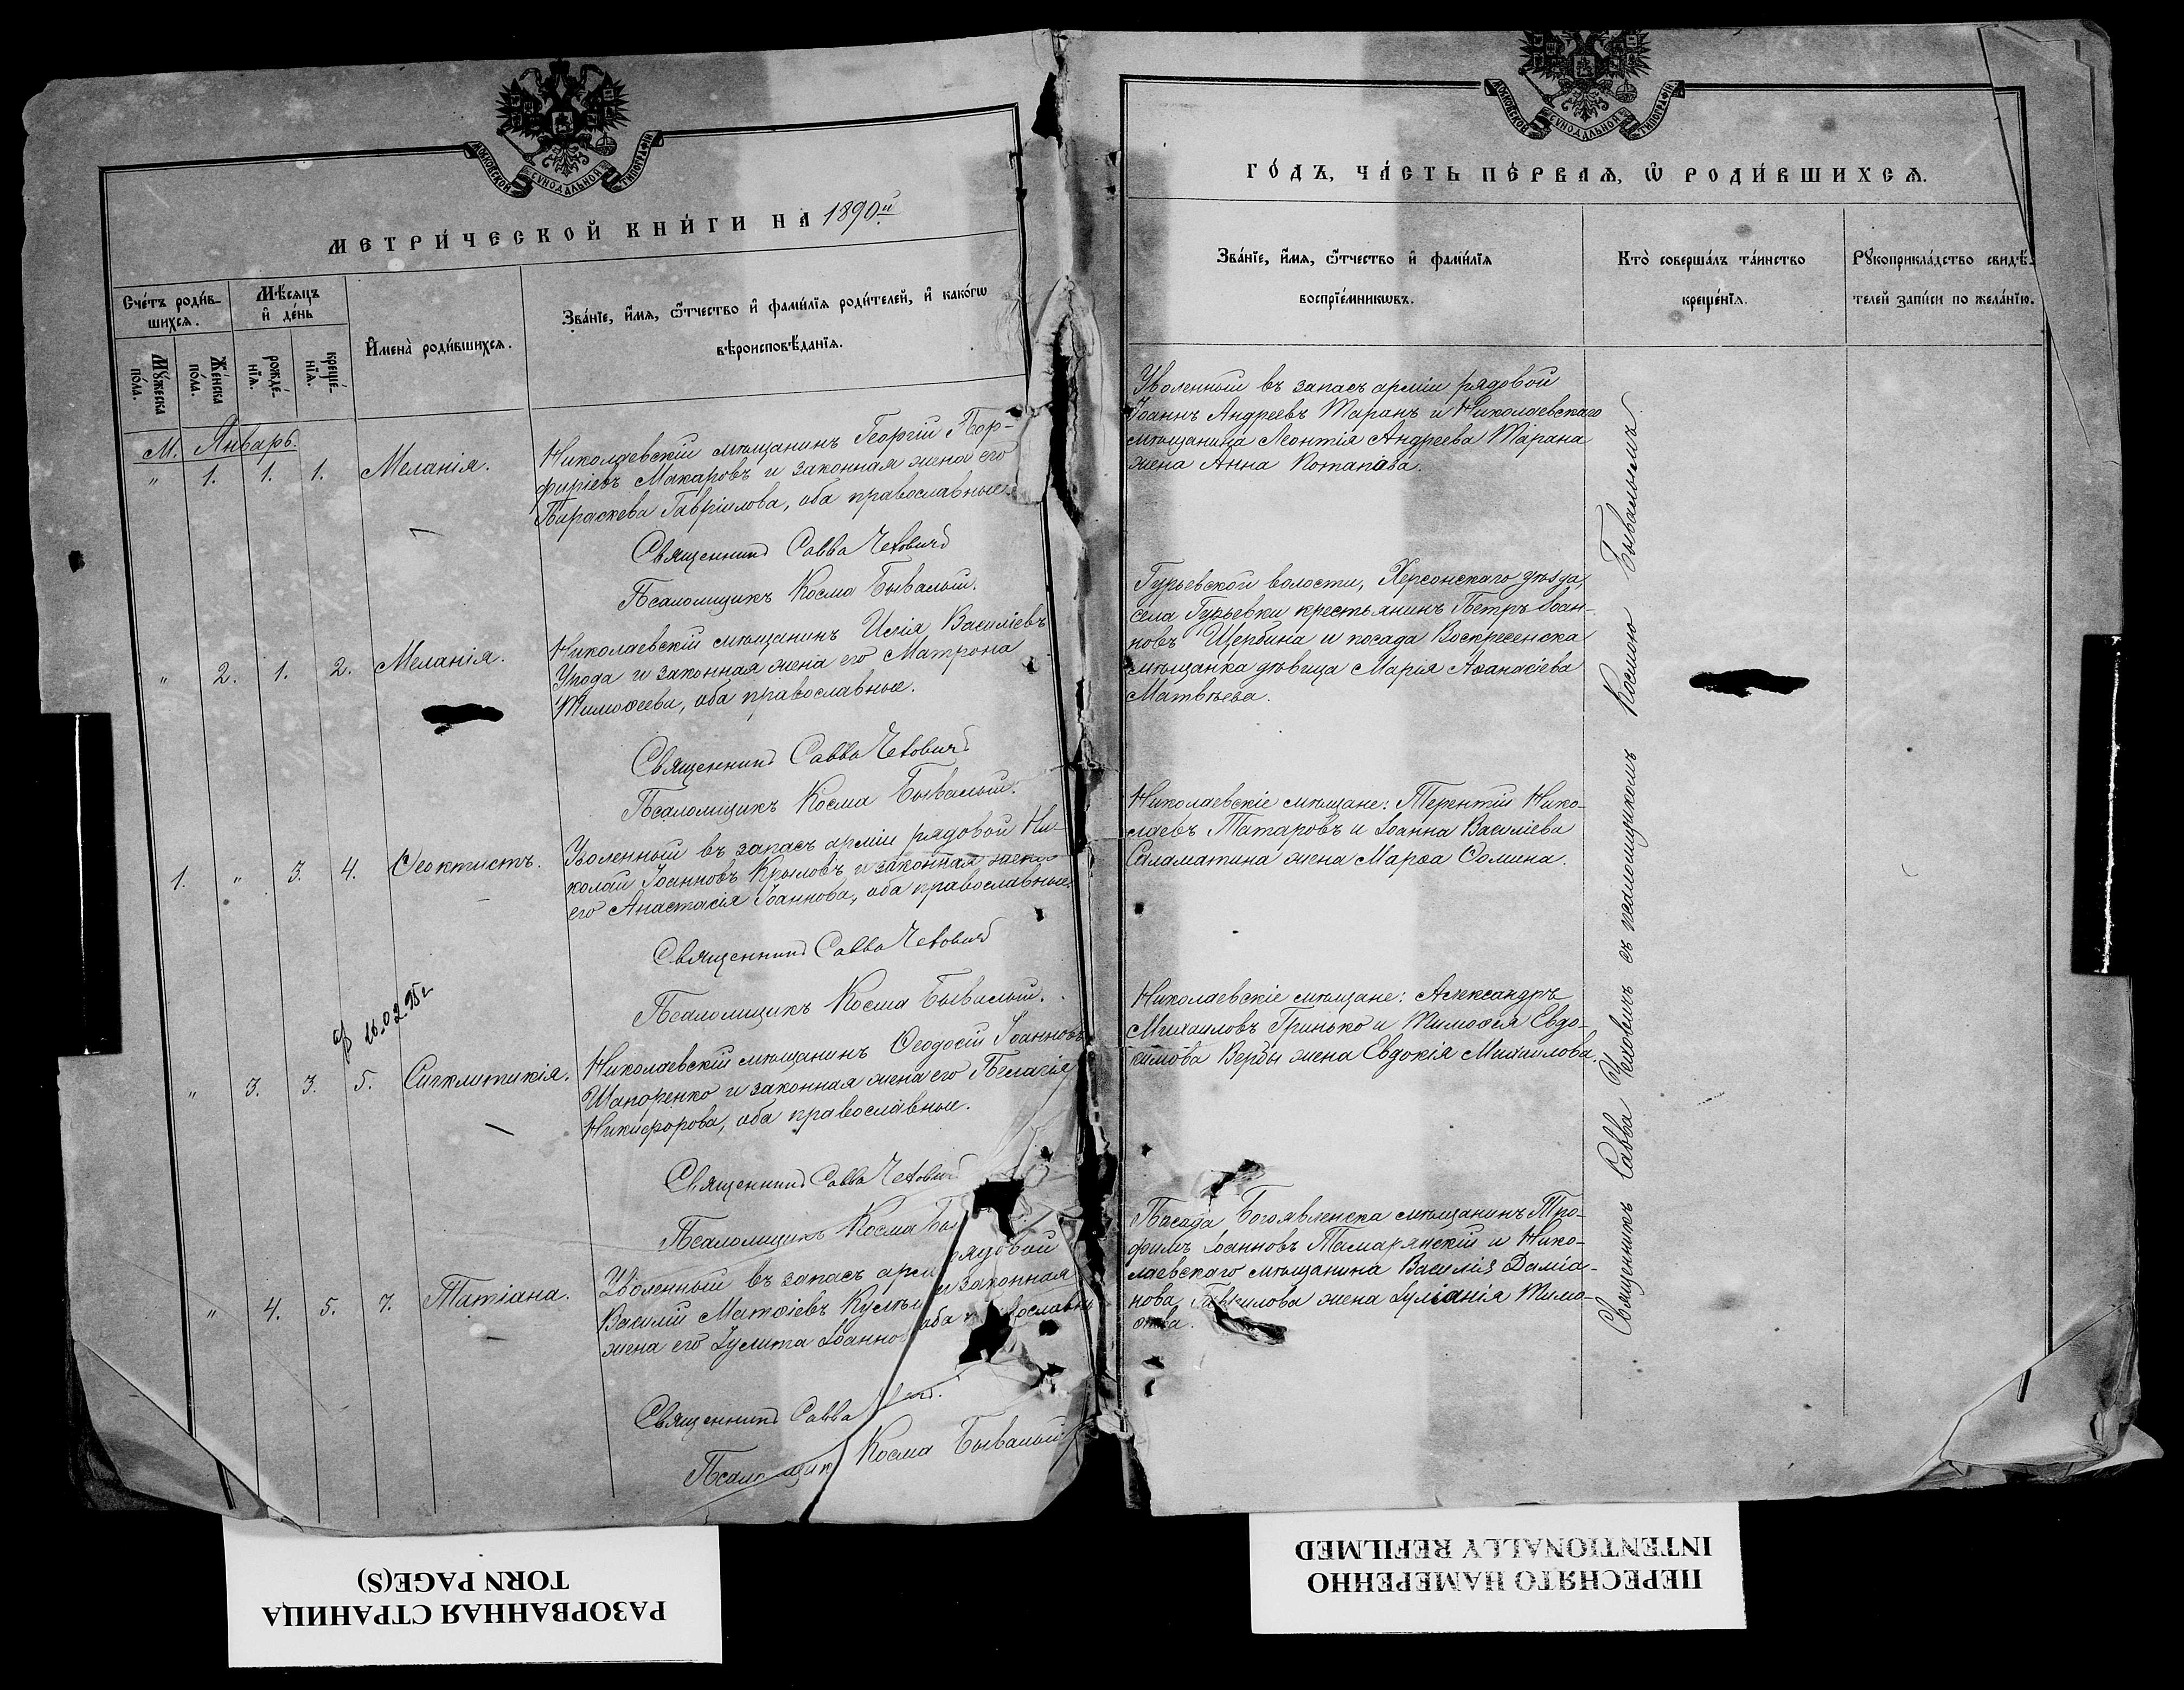 МОСКОВСКОЙ СѴНОДАЛЬНОЙ ТИПОГРАФІИ
МЕТРИ́ЧЕСКОЙ КНИ́ГИ НА 1890й
Счéтъ роди́в-
шихсѧ.
Мѣ́сѧцъ
и҆ дéнь
Мꙋ́жеска
пóла.
Жéнска
пóла.
рождé-
нїѧ.
крещé-
нїѧ.
И҆менà роди́вшихсѧ.
Звáнїе, и҆́мѧ, ѻ҆́тчество и҆ фами́лїѧ роди́телей, и҆ какóгѡ
вѣроисповѣ́данїѧ.
М. Январь.
" 1. 1. 1. Меланія.
Николаевскій мѣщанинъ Георгій Пор-
фиріевъ Макаровъ и законная жена его
Параскева Гавріилова, оба православные.
Священникъ Савва Чехович
Псаломщикъ Косма Бывалый.
" 2. 1. 2. Меланія.
Николаевскій мѣщанинъ Илія Василіевъ
Упода и законная жена его Матрона
Тимоѳеева, оба православные.
Священникъ Савва Чехович
Псаломщикъ Косма Бывалый.
1. " 3. 4. Ѳеоктистъ.
Уволенный въ запасъ арміи рядовой Ни-
колай Іоанновъ Крыловъ и законная жена
его Анастасія Іоаннова, оба православные.
Священникъ Савва Чехович
Псаломщикъ Косма Бывалый.
16.02.95г.
" 3. 3. 5. Сигклитикія.
Николаевскій мѣщанинъ Ѳеодосій Іоанновъ
Шапоренко и законная жена его Пелагія
Никифорова, оба православные.
Священникъ Савва Чехович
Псаломщикъ Косма Бы
" 4. 5. 7. Татіана.
Уволенный въ запасъ арм рядовой
Василій Матѳіевъ и законная
жена его Іулита Іоаннов оба православны
Священникъ Савва
Псаломщик Косма Бывалый
МОСКОВСКОЙ СѴНОДАЛЬНОЙ ТИПОГРАФІИ
ГО́ДЪ, ЧА́СТЬ ПЕ́РВАѦ, Ѽ РОДИ́ВШИХСѦ.
Звáнїе, и҆́мѧ, ѻ҆́тчество и҆ фами́лїѧ
воспрїéмникѡвъ.
Ктò совершáлъ тáинство
крещéнїѧ.
Рꙋкоприклáдство свидѣ́-
телей зáписи по желáнїю.
Уволенный въ запасъ арміи рядовой
Іоаннъ Андреевъ Таранъ и Николаевскаго
мѣщанина Леонтія Андреева Тарана
жена Анна Потапова.
Гурьевской волости, Херсонскаго уѣзда,
села Гурьевки крестьянинъ Петръ Іоан-
новъ Щербина и посада Воскресенска
мѣщанка дѣвица Марія Аѳанасіева
Матвѣева.
Николаевскіе мѣщане: Терентій Нико-
лаевъ Татаровъ и Іоанна Василіева
Саламатина жена Марѳа Ѳомина.
Николаевскіе мѣщане: Александръ
Михаиловъ Гринько и Тимоѳея Евдо-
кимова Вербы жена Евдокія Михаилова.
Посада Богоявленска мѣщанинъ Тро-
фимъ Іоанновъ Тамарянскій и Нико-
лаевскаго мѣщанина Василія Даміа-
нова Гаврилова жена Іуліанія Тимо-
ѳеева.
Священникъ Савва Чеховичъ съ псаломщикомъ Космою Бывалымъ.
РАЗОРВАННАЯ СТРАНИЦА
TORN PAGE(S)
ПЕРЕСНЯТО НАМЕРЕННО
INTENTIONALLY REFILMED